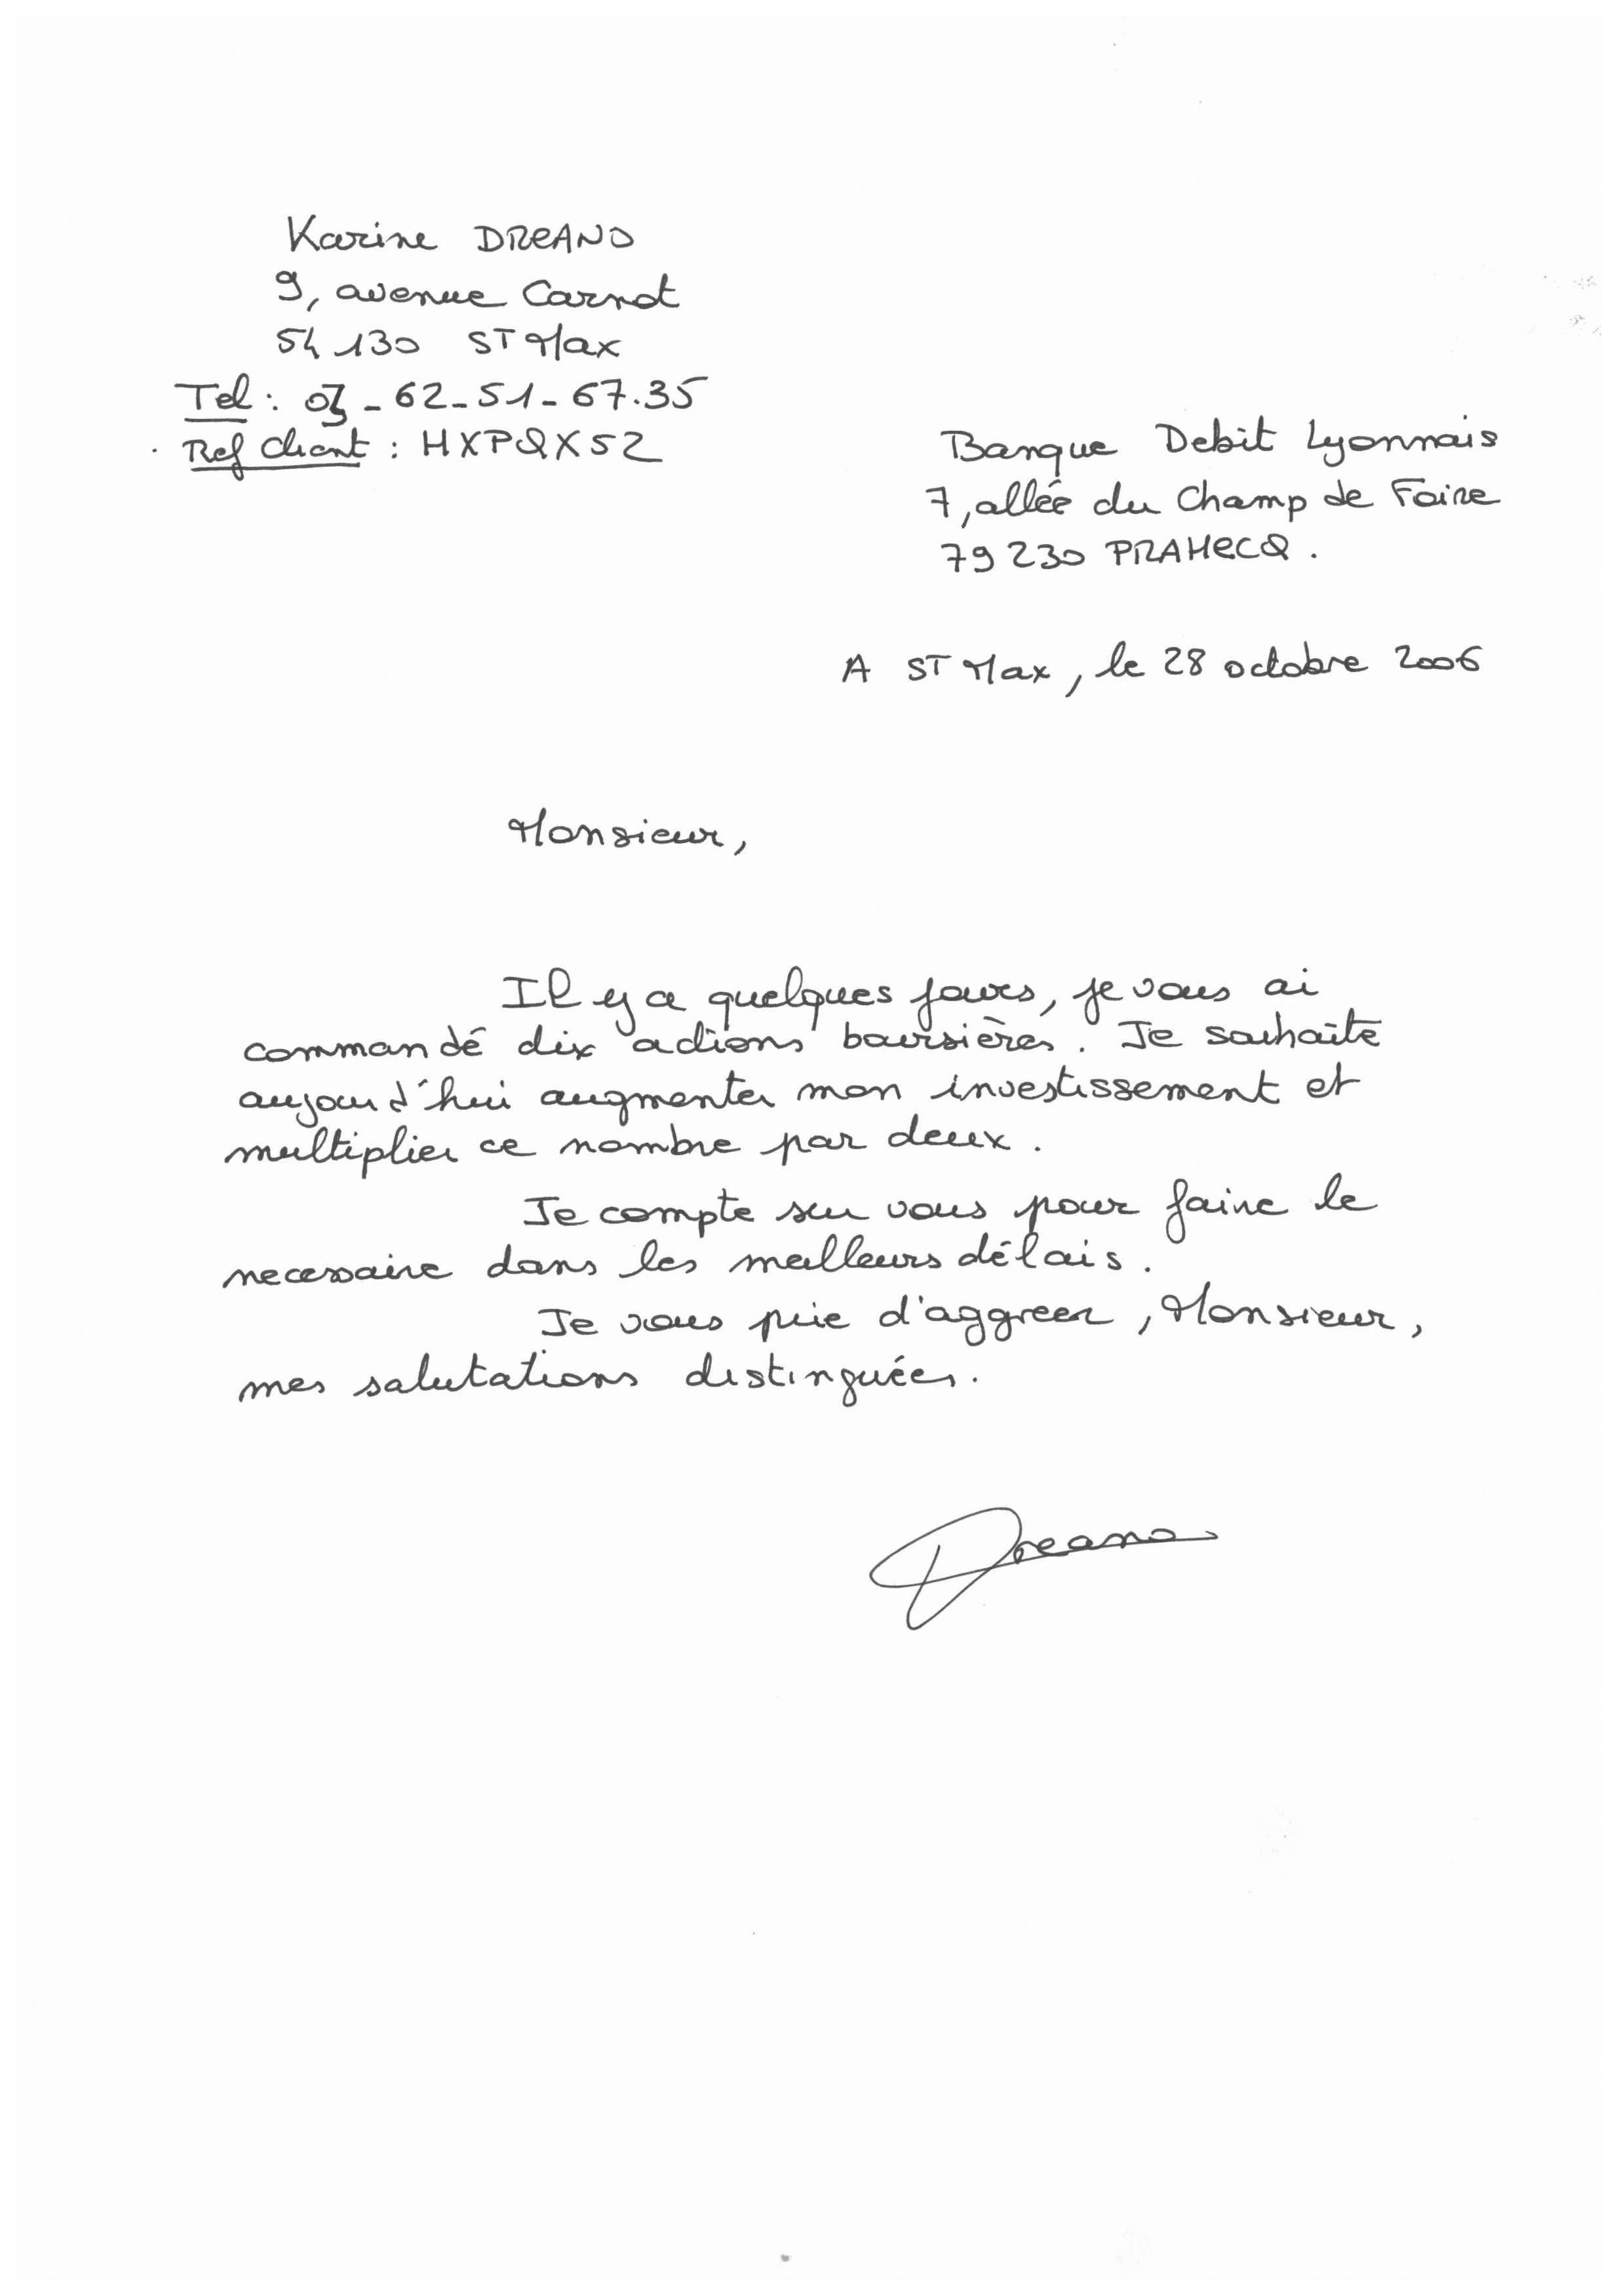 Karine DREANO
9, avenue Carnot
54 130 ST Max
Tel : 03 - 62 - 51 - 67.35
Ref client : HXPQX52
Banque Debit Lyonnais
7, allée du Champ de Foire
79 230 PRAHECQ.
A ST Max, le 28 octobre 2006
Monsieur,
Il y a quelques jours, je vous ai
commandé dix actions boursières. Je souhaite
aujourd'hui augmenter mon investissement et
multiplier ce nombre par deux.
Je compte sur vous pour faire le
necessaire dans les meilleurs délais.
Je vous prie d'aggreer, Monsieur,
mes salutations distinguées.
Dreano